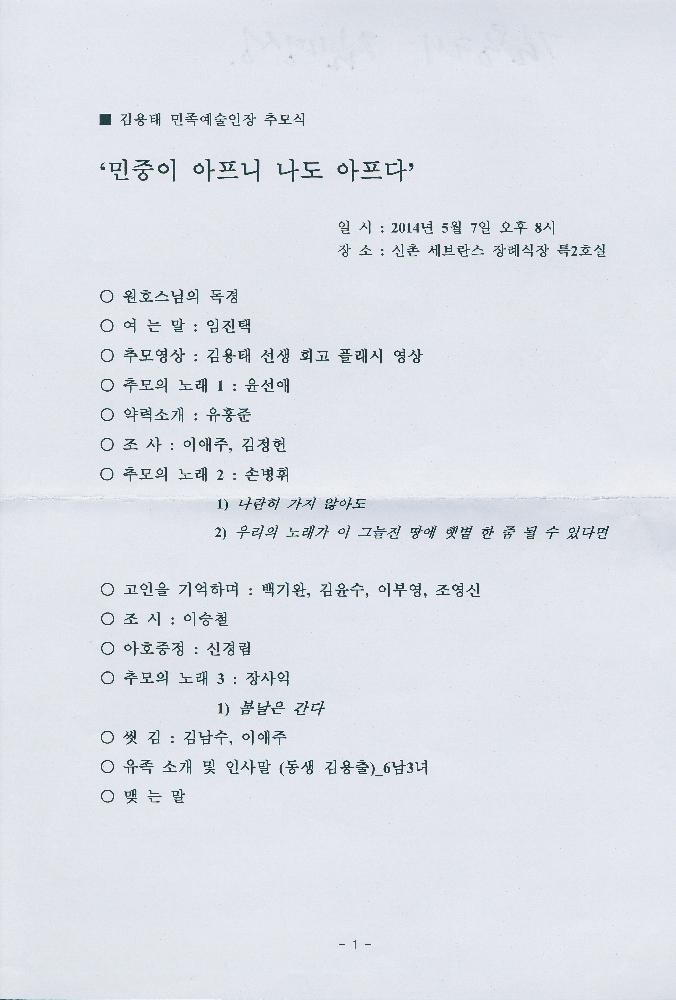 ■ 김용태 민족예술인장 추모식
‘민중이 아프니 나도 아프다’
일 시 : 2014년 5월 7일 오후 8시
장 소 : 신촌 세브란스 장례식장 특2호실
○ 원호스님의 독경
○ 여 는 말 : 임진택
○ 추모영상 : 김용태 선생 회고 플래시 영상
○ 추모의 노래 1 : 윤선애
○ 약력소개 : 유홍준
○ 조 사 : 이애주, 김정헌
○ 추모의 노래 2 : 손병휘
1) 나란히 가지 않아도
2) 우리의 노래가 이 그늘진 땅에 햇볕 한 줌 될 수 있다면
○ 고인을 기억하며 : 백기완, 김윤수, 이부영, 조영신
○ 조 시 : 이승철
○ 아호증정 : 신경림
○ 추모의 노래 3 : 장사익
1) 봄날은 간다
○ 씻 김 : 김남수, 이애주
○ 유족 소개 및 인사말 (동생 김용출)_6남3녀
○ 맺 는 말
- 1 -